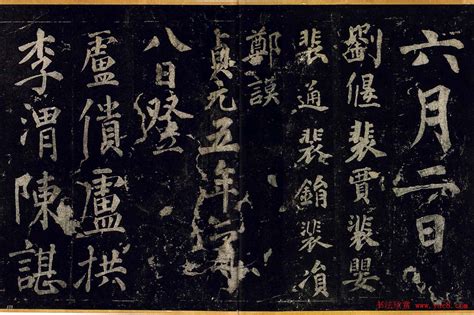 六月二日
劉偃裴賈裴嬰
裴通裴銷裴湏
鄭謨
貞元五年
八日登
盧償盧拱
李渭陳諶
书法欣赏